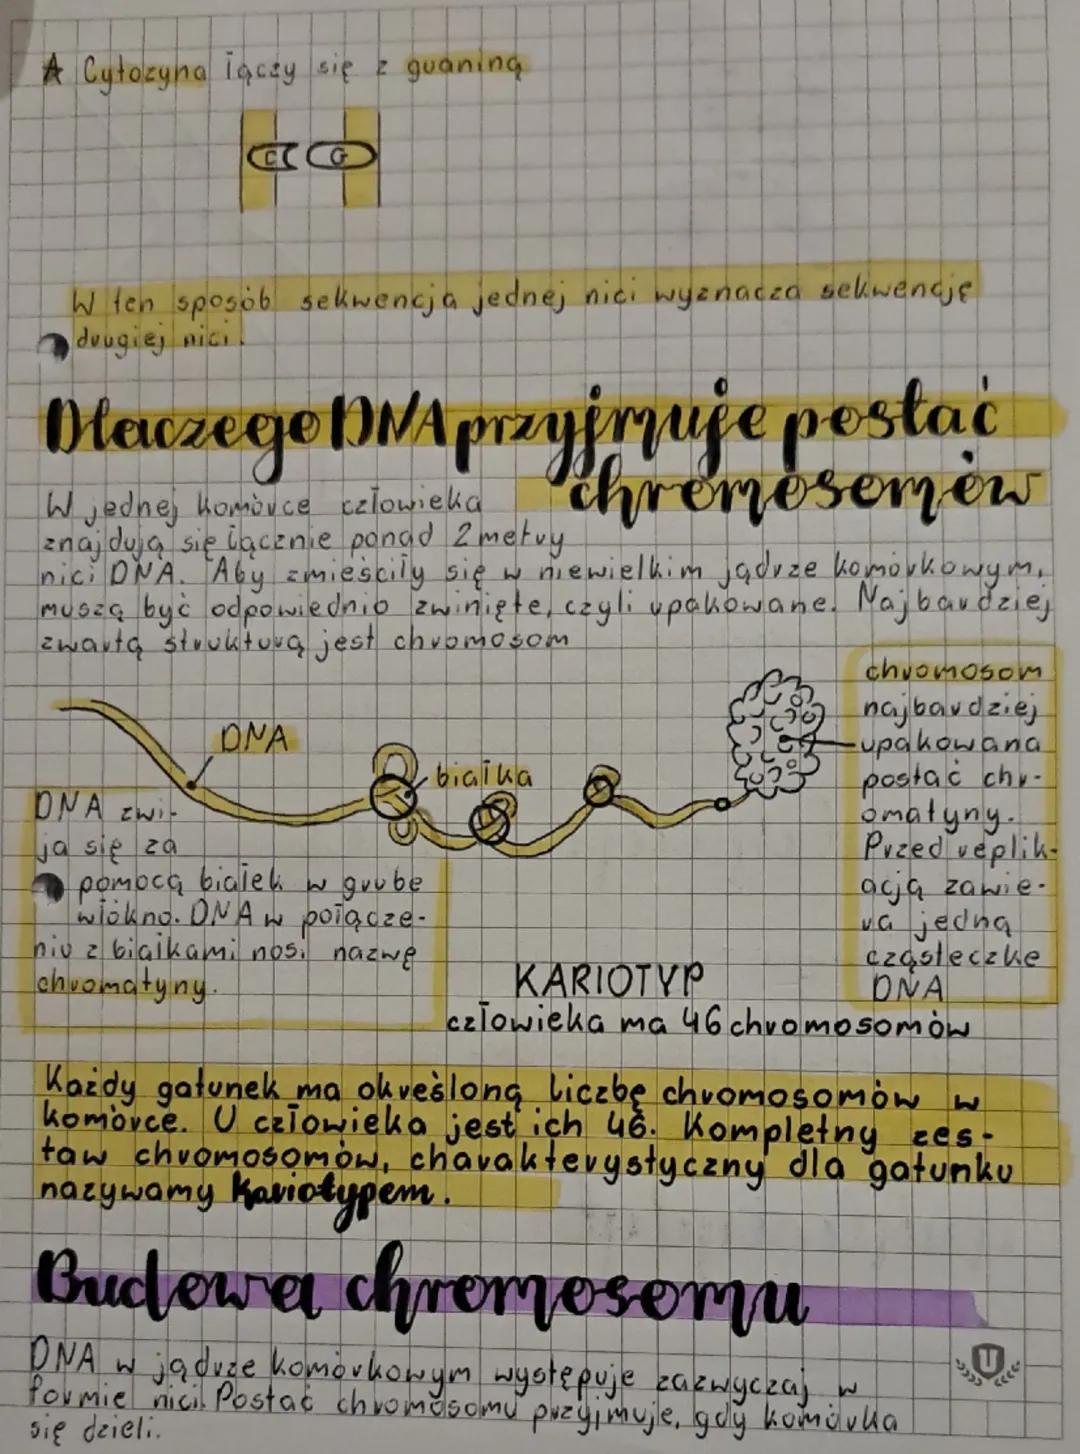 Cytozyna łączy się z guaniną
C G
W ten sposób sekwencja jednej nici wyznacza sekwencję
drugiej nici.
Dlaczego DNA przyjmuje postać
chromosomów
W jednej komórce człowieka
znajdują się łącznie ponad 2 metry
nici DNA. Aby zmieściły się w niewielkim jądrze komórkowym,
muszą być odpowiednio zwinięte, czyli upakowane. Najbardziej
zwartą strukturą jest chromosom
DNA
białka
chromosom
najbardziej
upakowana
postać chr-
omatyny.
Przed replik-
acją zawie-
ra jedną
cząsteczke
DNA
DNA zwi-
ja się za
pomocą białek w grube
włókno. DNA w połącze-
niu z białkami nosi nazwę
chromatyny.
KARIOTYP
człowieka ma 46 chromosomów
Każdy gatunek ma określoną liczbę chromosomów w
komórce. U człowieka jest ich 46. Kompletny zes-
taw chromosomów, charakterystyczny dla gatunku
nazywamy Kariotypem.
Budowa chromosomu
DNA w jądrze komórkowym występuje zazwyczaj w
formie nici. Postać chromosomu przyjmuje, gdy komórka
się dzieli.
U